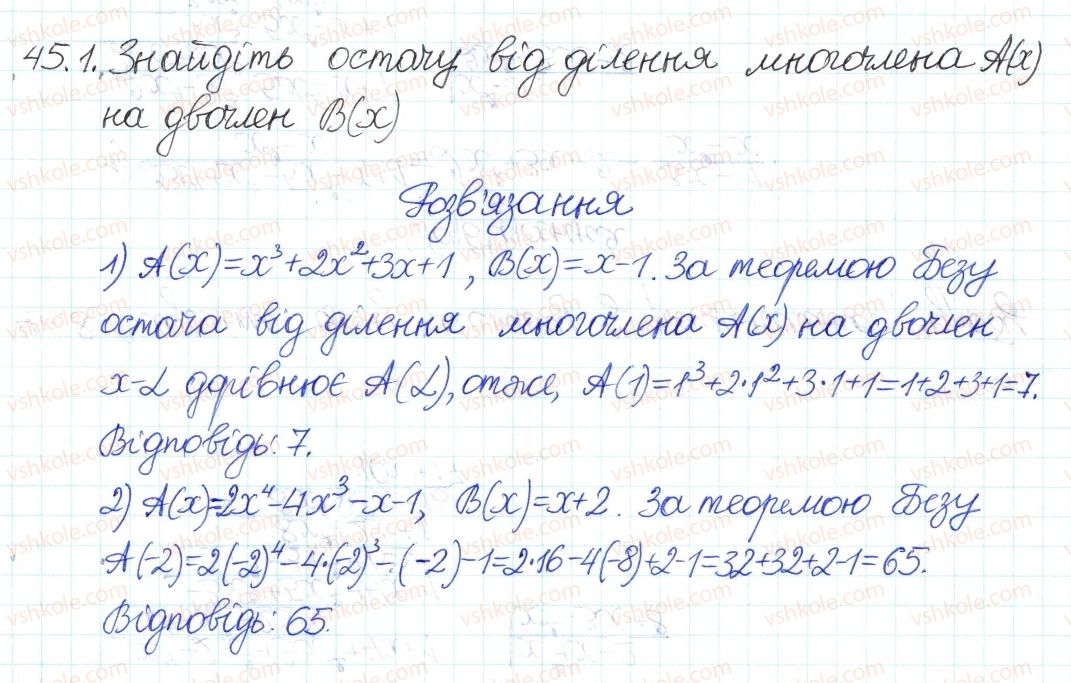 45.1. Знайдіть остачу від ділення многочлена A(x)
на двочлен B(x)
Розв'язання
1) A(x)=x³+2x²+3x+1, B(x)=x-1. За теоремою Безу
остача від ділення многочлена A(x) на двочлен
x-α дорівнює A(α), отже, A(1)=1³+2·1²+3·1+1=1+2+3+1=7.
Відповідь: 7.
2) A(x)=2x⁴-4x³-x-1, B(x)=x+2. За теоремою Безу
A(-2)=2(-2)⁴-4·(-2)³-(-2)-1=2·16-4(-8)+2-1=32+32+2-1=65.
Відповідь: 65.